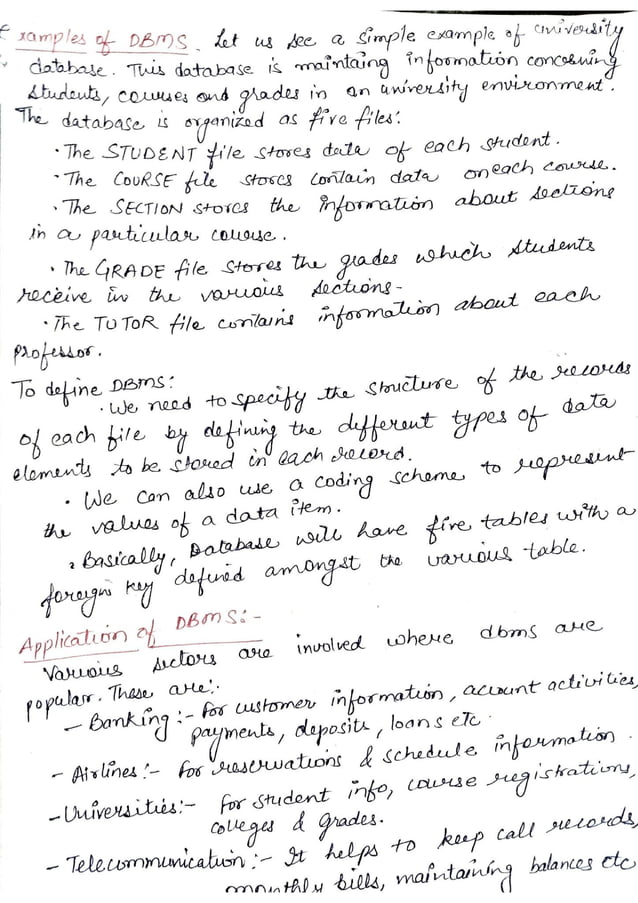 Examples of DBMS. Let us see a simple example of university
database. This database is maintaing information concerning
students, courses and grades in an university environment.
The database is organized as five files:
· The STUDENT file stores data of each student.
· The COURSE file stores contain data on each course.
· The SECTION stores the information about sections
in a particular course.
· The GRADE file stores the grades which students
receive in the various sections-
· The TUTOR file contains information about each
professor.
To define DBMS:
· We need to specify the structure of the records
of each file by defining the different types of data
elements to be stored in each record.
· We can also use a coding scheme to represent
the values of a data item.
· Basically, Database will have five tables with a
foreign key defined amongst the various table.
Application of DBMS:-
Various sectors are involved where dbms are
popular. These are:
- Banking:- for customer information, account activities,
payments, deposits, loans etc.
- Airlines:- for reservations & schedule information.
- Universities:- for student info, course registrations,
colleges & grades.
- Telecommunication:- It helps to keep call records,
monthly bills, maintaining balances etc